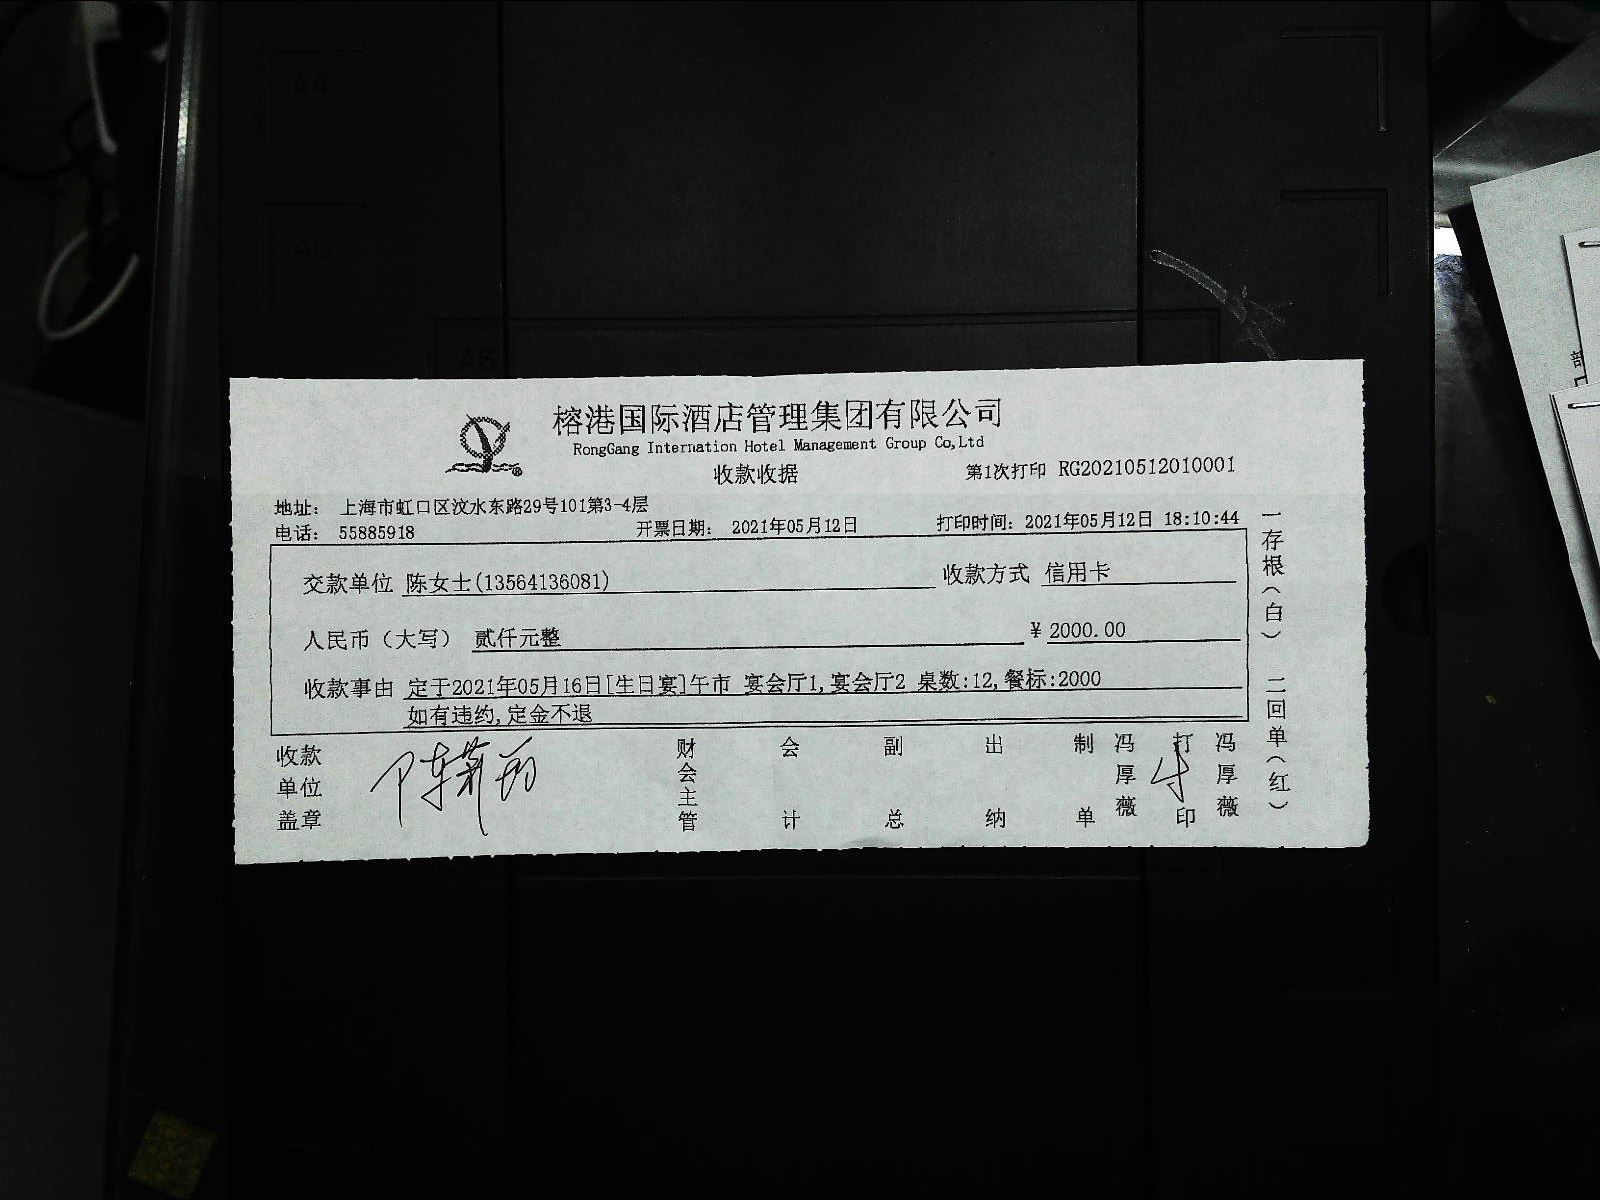 A4
A5
A6
榕港国际酒店管理集团有限公司
RongGang Internation Hotel Management Group Co,Ltd
收款收据
第1次打印 RG20210512010001
地址: 上海市虹口区汶水东路29号101第3-4层
电话: 55885918 开票日期: 2021年05月12日 打印时间: 2021年05月12日 18:10:44
交款单位 陈女士(13564136081) 收款方式 信用卡
人民币（大写） 贰仟元整 ¥ 2000.00
收款事由 定于2021年05月16日[生日宴]午市 宴会厅1,宴会厅2 桌数:12,餐标:2000
如有违约,定金不退
收款单位盖章
财会主管 会计 副总 出纳 制单 冯厚薇 打印 冯厚薇
一存根（白） 二回单（红）
部